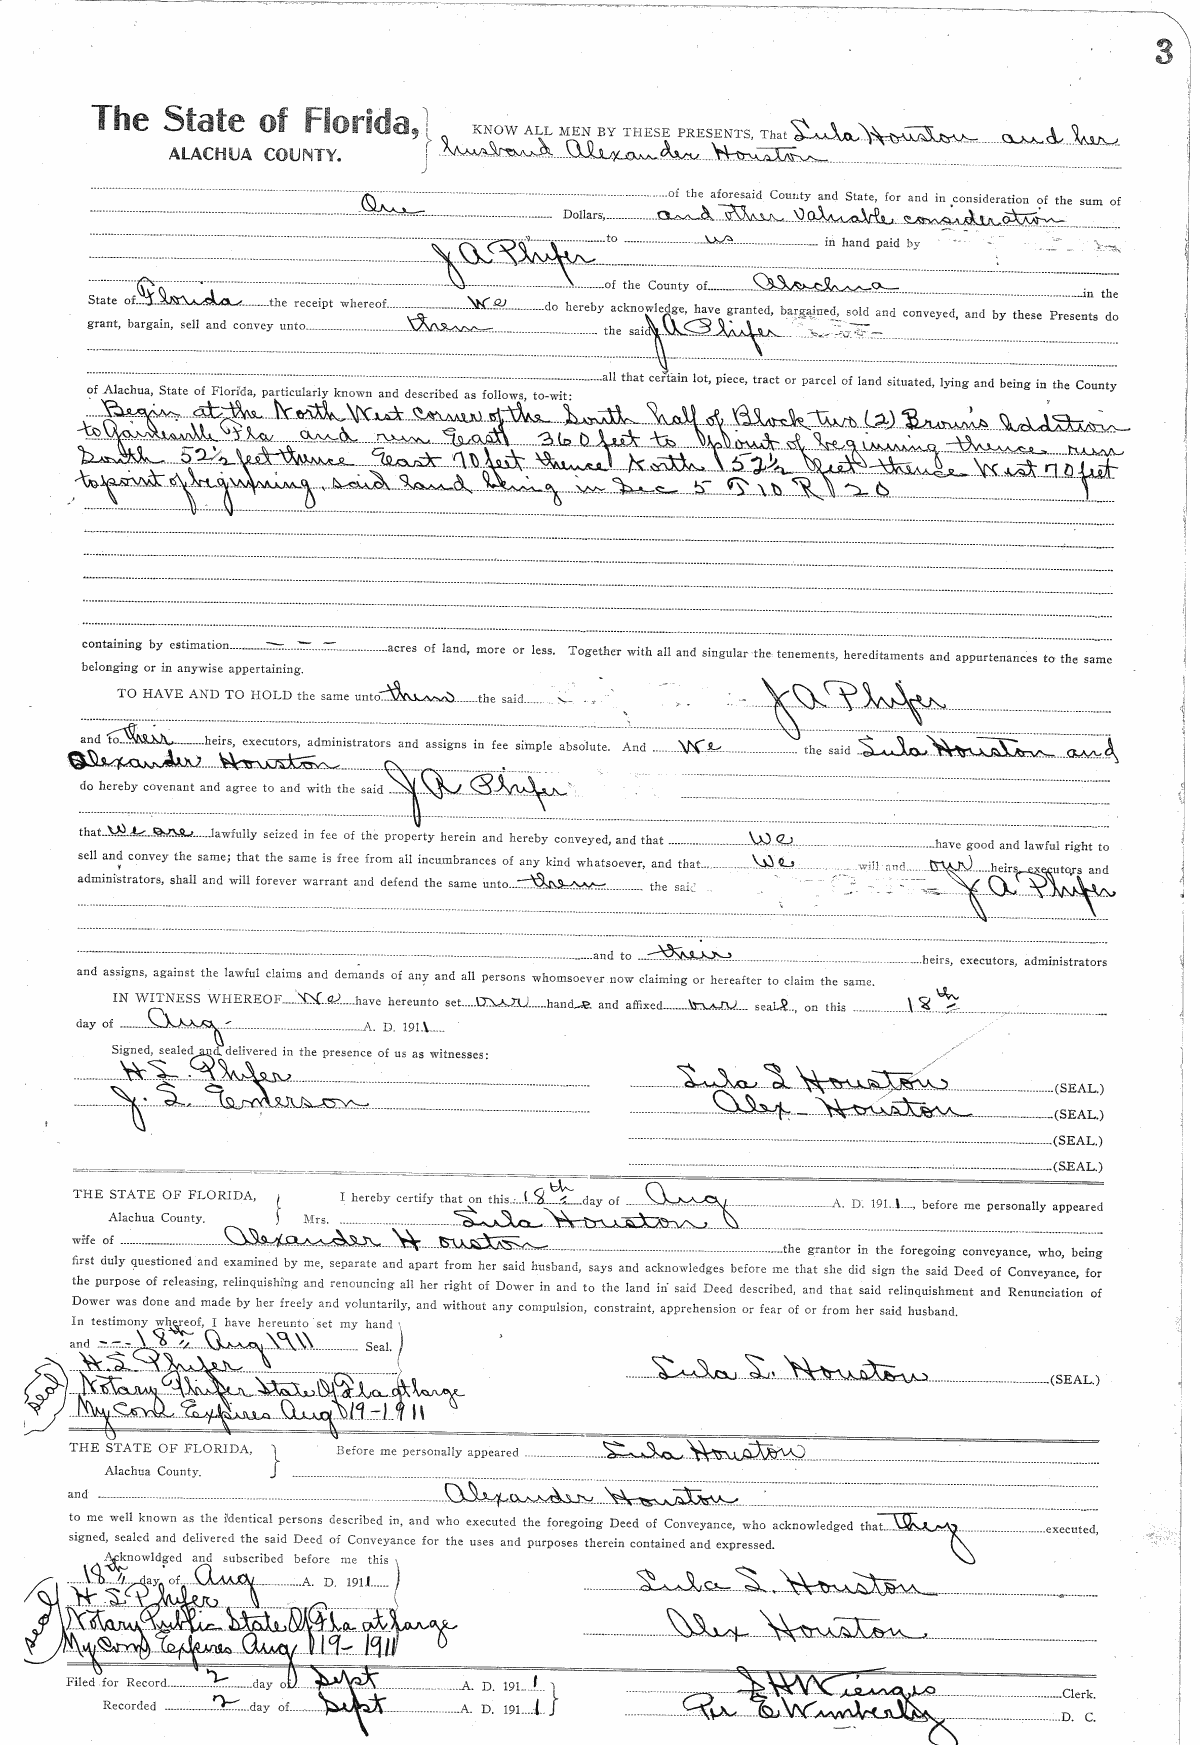 3
The State of Florida, KNOW ALL MEN BY THESE PRESENTS, That Lula Houston and her
ALACHUA COUNTY. husband Alexander Houston
of the aforesaid County and State, for and in consideration of the sum of
One Dollars, and other valuable consideration
to us in hand paid by
J A Phifer
of the County of Alachua in the
State of Florida the receipt whereof we do hereby acknowledge, have granted, bargained, sold and conveyed, and by these Presents do
grant, bargain, sell and convey unto them the said J A Phifer
all that certain lot, piece, tract or parcel of land situated, lying and being in the County
of Alachua, State of Florida, particularly known and described as follows, to-wit:
Begin at the North West corner of the South half of Block two (2) Brown's Addition
to Gainesville Fla and run East 360 feet to point of beginning thence run
South 52½ feet thence East 70 feet thence North 52½ feet thence West 70 feet
to point of beginning, said land being in Sec 5 T 10 R 20
containing by estimation - - - acres of land, more or less. Together with all and singular the tenements, hereditaments and appurtenances to the same
belonging or in anywise appertaining.
TO HAVE AND TO HOLD the same unto them the said J A Phifer
and to their heirs, executors, administrators and assigns in fee simple absolute. And we the said Lula Houston and
Alexander Houston
do hereby covenant and agree to and with the said J A Phifer
that we are lawfully seized in fee of the property herein and hereby conveyed, and that we have good and lawful right to
sell and convey the same; that the same is free from all incumbrances of any kind whatsoever, and that we will and our heirs, executors and
administrators, shall and will forever warrant and defend the same unto them the said J A Phifer
and to their heirs, executors, administrators
and assigns, against the lawful claims and demands of any and all persons whomsoever now claiming or hereafter to claim the same.
IN WITNESS WHEREOF We have hereunto set our hands and affixed our seals, on this 18th
day of Aug A. D. 1911
Signed, sealed and delivered in the presence of us as witnesses:
H L Phifer Lula L Houston (SEAL.)
J. L. Emerson Alex Houston (SEAL.)
(SEAL.)
(SEAL.)
THE STATE OF FLORIDA, I hereby certify that on this 18th day of Aug A. D. 1911, before me personally appeared
Alachua County. Mrs. Lula Houston
wife of Alexander Houston the grantor in the foregoing conveyance, who, being
first duly questioned and examined by me, separate and apart from her said husband, says and acknowledges before me that she did sign the said Deed of Conveyance, for
the purpose of releasing, relinquishing and renouncing all her right of Dower in and to the land in said Deed described, and that said relinquishment and Renunciation of
Dower was done and made by her freely and voluntarily, and without any compulsion, constraint, apprehension or fear of or from her said husband.
In testimony whereof, I have hereunto set my hand
and --- 18th Aug 1911 Seal.
H. L Phifer Lula L. Houston (SEAL.)
(seal) Notary Phifer State Of Fla at large
My Com Expires Aug 19-1911
THE STATE OF FLORIDA, Before me personally appeared Lula Houston
Alachua County.
and Alexander Houston
to me well known as the identical persons described in, and who executed the foregoing Deed of Conveyance, who acknowledged that they executed,
signed, sealed and delivered the said Deed of Conveyance for the uses and purposes therein contained and expressed.
Acknowldged and subscribed before me this
18th day of Aug A. D. 1911 Lula L. Houston
H L Phifer
(seal) Notary Public State Of Fla at large Alex Houston
My Com Expires Aug 19-1911
Filed for Record 2 day of Sept A. D. 1911 S H Wienges Clerk.
Recorded 2 day of Sept A. D. 1911 Per E Wimberly D. C.